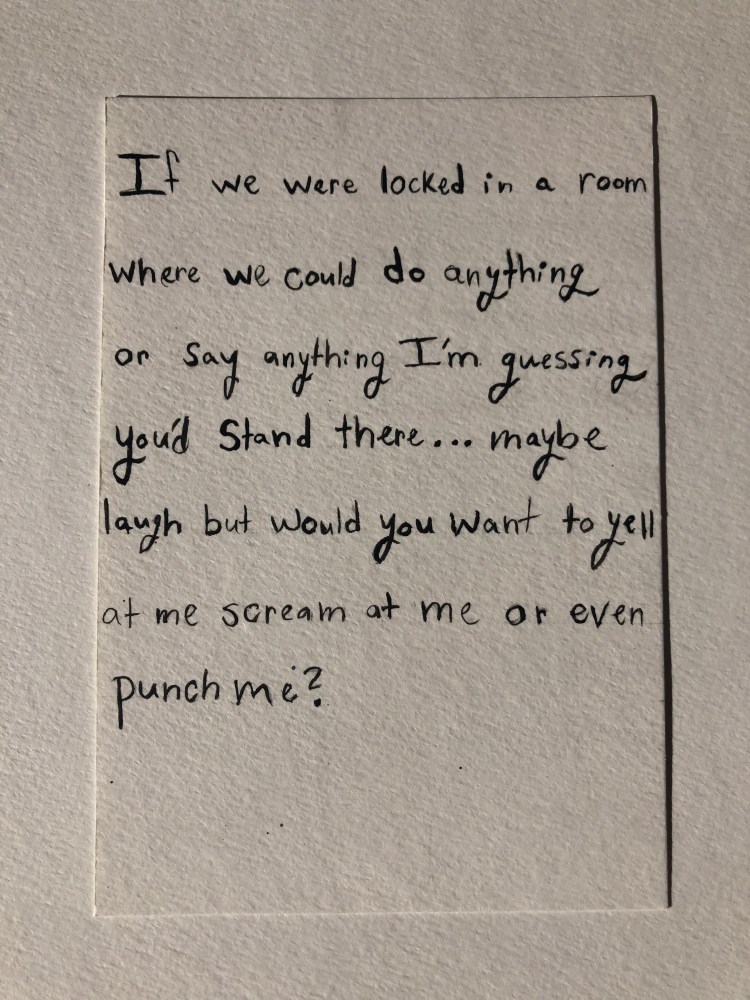 If we were locked in a room
where we could do anything
or say anything I'm guessing
you'd stand there... maybe
laugh but would you want to yell
at me scream at me or even
punch me?